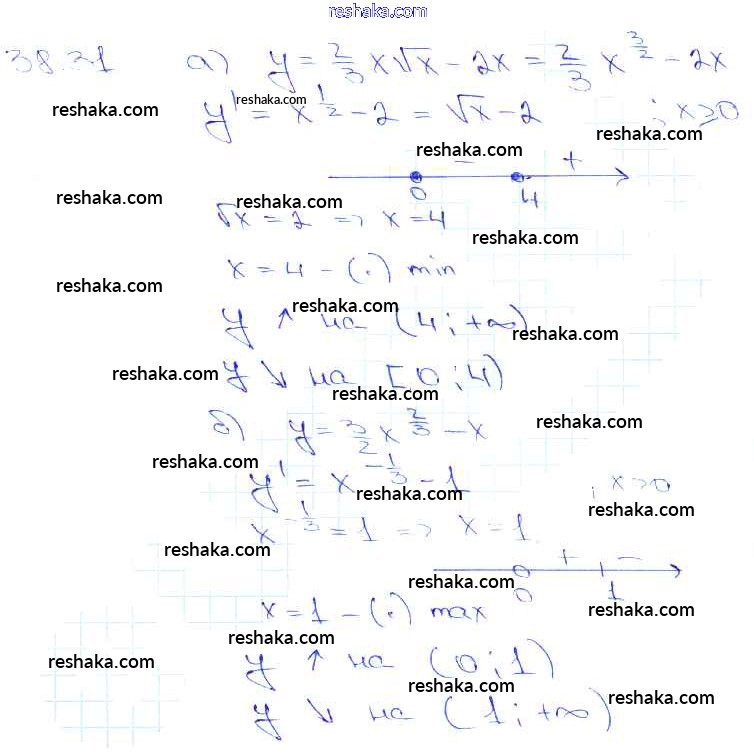 reshaka.com
38.31 а) y = 2/3 x√x - 2x = 2/3 x^(3/2) - 2x
reshaka.com
y' = x^(1/2) - 2 = √x - 2 ; x ≥ 0
reshaka.com reshaka.com
reshaka.com
- +
0 4
reshaka.com reshaka.com
√x = 2 => x = 4
reshaka.com
x = 4 - (·) min
reshaka.com
reshaka.com
y ↑ на (4; +∞)
reshaka.com
y ↓ на [0; 4)
reshaka.com
reshaka.com
б) y = 3/2 x^(2/3) - x
reshaka.com
reshaka.com
y' = x^(-1/3) - 1 ; x > 0
reshaka.com
reshaka.com
x^(-1/3) = 1 => x = 1
reshaka.com
+ -
0 1
reshaka.com
x = 1 - (·) max
reshaka.com
reshaka.com
y ↑ на (0; 1)
reshaka.com
reshaka.com
reshaka.com
y ↓ на (1; +∞)